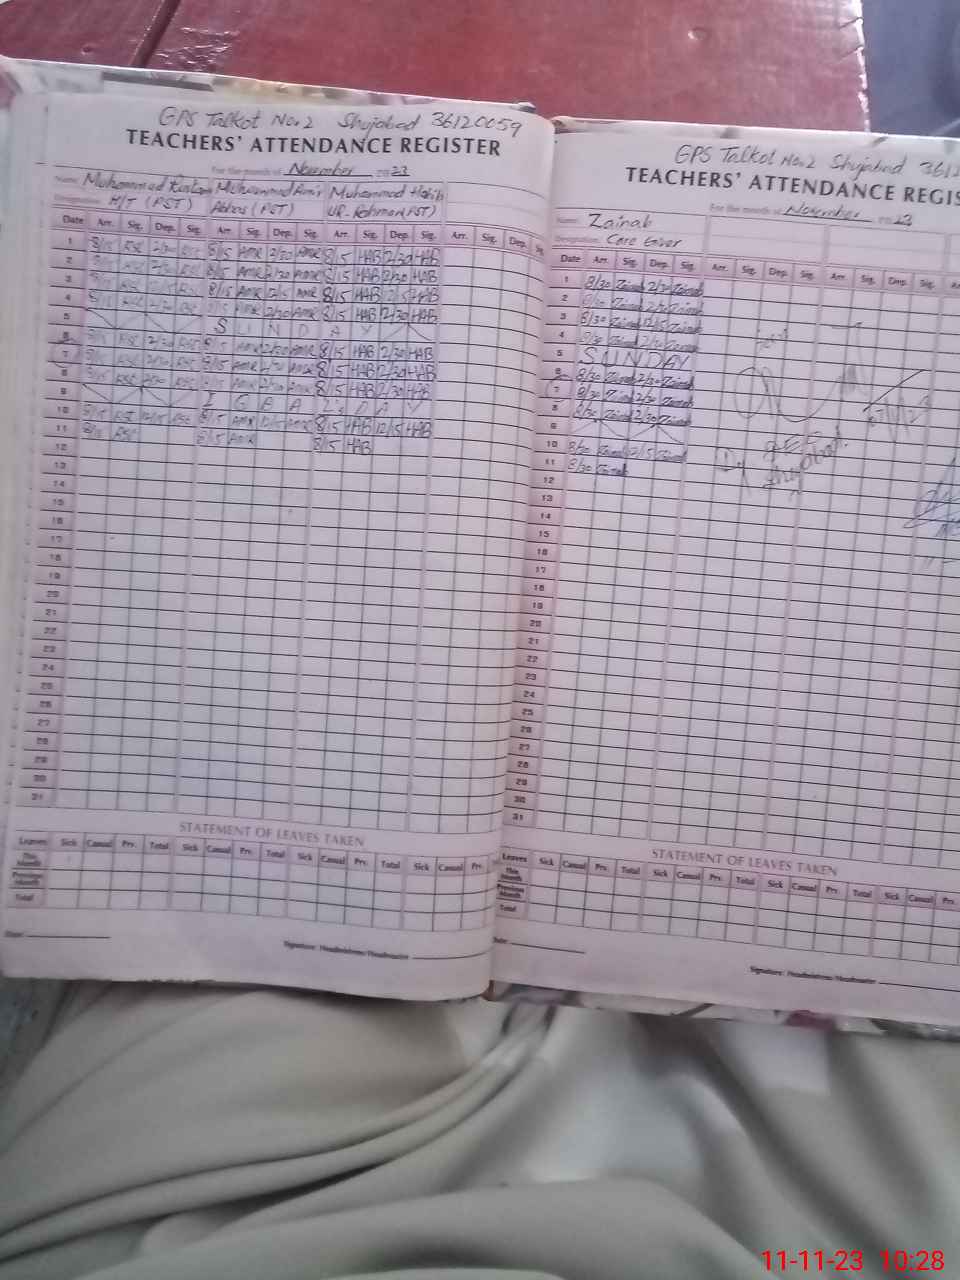 GPS Talkot No.2 Shujabad 36120059
TEACHERS' ATTENDANCE REGISTER
For the month of November 2023
Name Muhammad Rustam Muhammad Amir Muhammad Habib
Designation H/T (PST) Abbas (PST) UR. Rahman (PST)
Date Arr. Sig. Dep. Sig. Arr. Sig. Dep. Sig. Arr. Sig. Dep. Sig. Arr. Sig. Dep. Sig.
1 8/15 RSC 2/30 RSC 8/15 AMR 2/30 AMR 8/15 HAB 2/30 HAB
2 8/15 RSC 2/30 RSC 8/15 AMR 2/30 AMR 8/15 HAB 2/30 HAB
3 8/15 RSC 12/15 RSC 8/15 AMR 12/15 AMR 8/15 HAB 12/15 HAB
4 8/15 RSC 2/30 RSC 8/15 AMR 2/30 AMR 8/15 HAB 2/30 HAB
5 SUNDAY
6 8/15 RSC 2/30 RSC 8/15 AMR 2/30 AMR 8/15 HAB 2/30 HAB
7 8/15 RSC 2/30 RSC 8/15 AMR 2/30 AMR 8/15 HAB 2/30 HAB
8 8/15 RSC 2/30 RSC 8/15 AMR 2/30 AMR 8/15 HAB 2/30 HAB
9 IQBAL's DAY
10 8/15 RSC 12/15 RSC 8/15 AMR 12/15 AMR 8/15 HAB 12/15 HAB
11 8/15 RSC 8/15 AMR 8/15 HAB
12
13
14
15
16
17
18
19
20
21
22
23
24
25
26
27
28
29
30
31
STATEMENT OF LEAVES TAKEN
Leaves Sick Casual Prv. Total Sick Casual Prv. Total Sick Casual Prv. Total Sick Casual Prv.
This Month
Previous Month
Total
Date:
Signature: Headmistress/Headmaster
GPS Talkot No.2 Shujabad 3612
TEACHERS' ATTENDANCE REGIS
For the month of November 2023
Name Zainab
Designation Care Giver
Date Arr. Sig. Dep. Sig. Arr. Sig. Dep. Sig. Arr. Sig. Dep. Sig. Arr.
1 8/30 Zainab 2/30 Zainab
2 8/30 Zainab 2/30 Zainab
3 8/30 Zainab 12/15 Zainab
4 8/30 Zainab 2/30 Zainab
5 SUNDAY
6 8/30 Zainab 2/30 Zainab
7 8/30 Zainab 2/30 Zainab
8 8/30 Zainab 2/30 Zainab
9
10 8/30 Zainab 12/15 Zainab
11 8/30 Zainab
12
13
14
15
16
17
18
19
20
21
22
23
24
25
26
27
28
29
30
31
Dy
Shujabad
STATEMENT OF LEAVES TAKEN
Leaves Sick Casual Prv. Total Sick Casual Prv. Total Sick Casual Prv. Total Sick Casual Prv.
This Month
Previous Month
Total
Date:
Signature: Headmistress/Headmaster
11-11-23 10:28